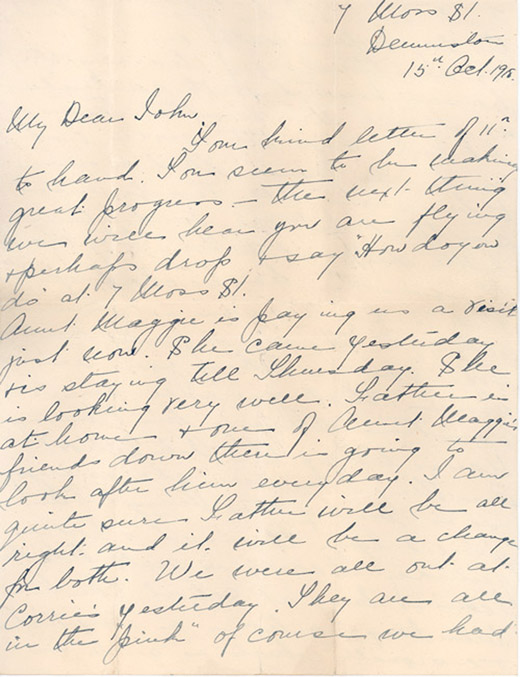 7 Moss St.
Dennistoun
15th Oct. 191
My Dear John,
Your kind letter of 11th
to hand. You seem to be making
great progress – the next thing
we will hear you are flying
& perhaps drop & say "How do you
do" at 7 Moss St.
Aunt Maggie is paying us a visit
just now. She came yesterday
& is staying till Thursday. She
is looking very well. Father is
at home & one of Aunt Maggie's
friends down there is going to
look after him every day. I am
quite sure Father will be all
right and it will be a change
for both. We were all out at
Corrie's yesterday. They are all
in the "pink" of course we had